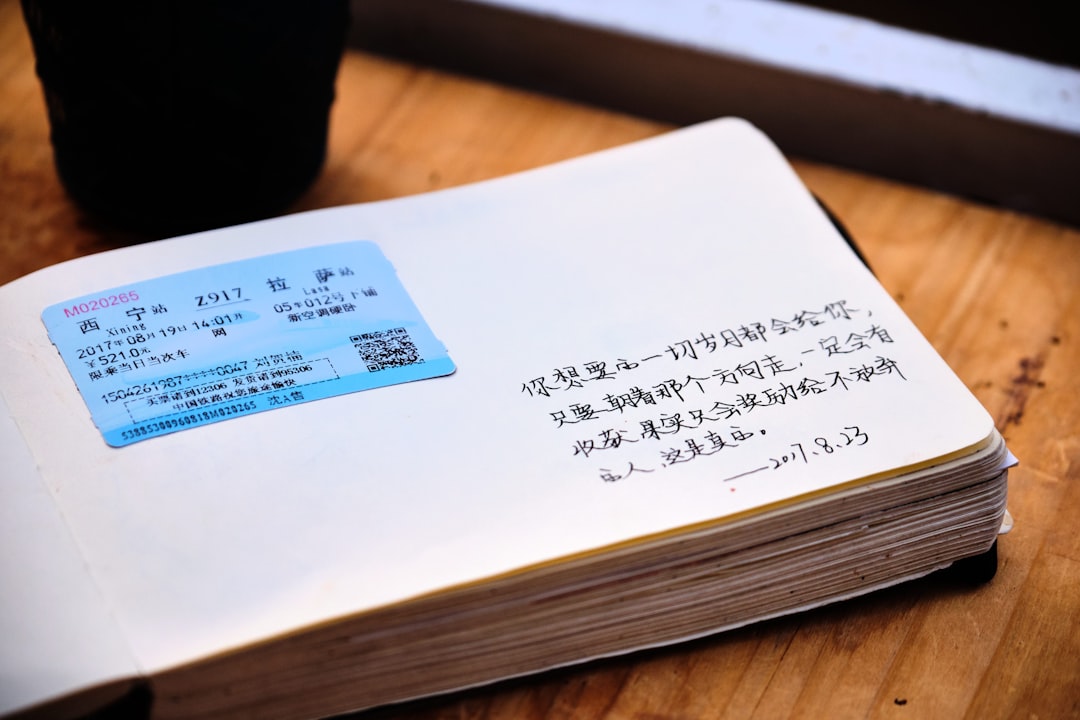 M020265
西 宁站 Z917 拉 萨站
Xining Lasa
2017年08月19日 14:01开 05车012号下铺
￥521.0元 网 新空调硬卧
限乘当日当次车
1504261987****0047
买票请到12306 发货请到95306
中国铁路祝您旅途愉快
53885300960818M020265 售
你想要的一切岁月都会给你，
只要朝着那个方向走，一定会有
收获，果实只会奖励给不放弃
的人，这是真的。
——2017.8.23